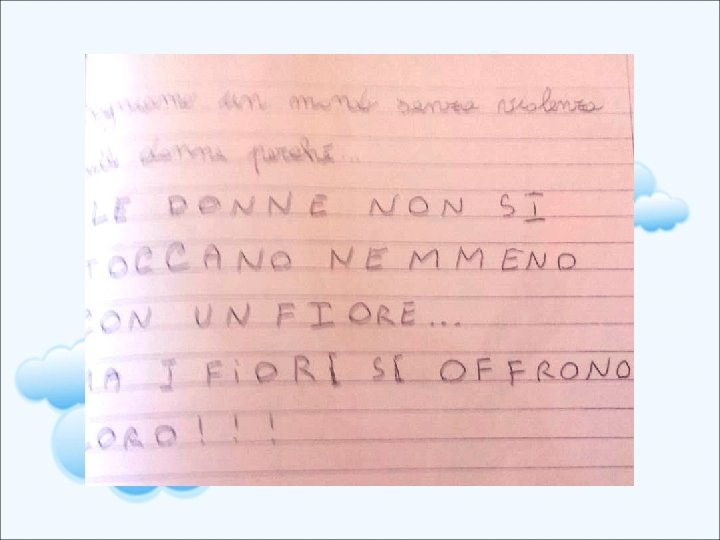 un mondo senza violenza
donne perché...
LE DONNE NON SI
TOCCANO NEMMENO
CON UN FIORE...
MA I FIORI SI OFFRONO
LORO!!!